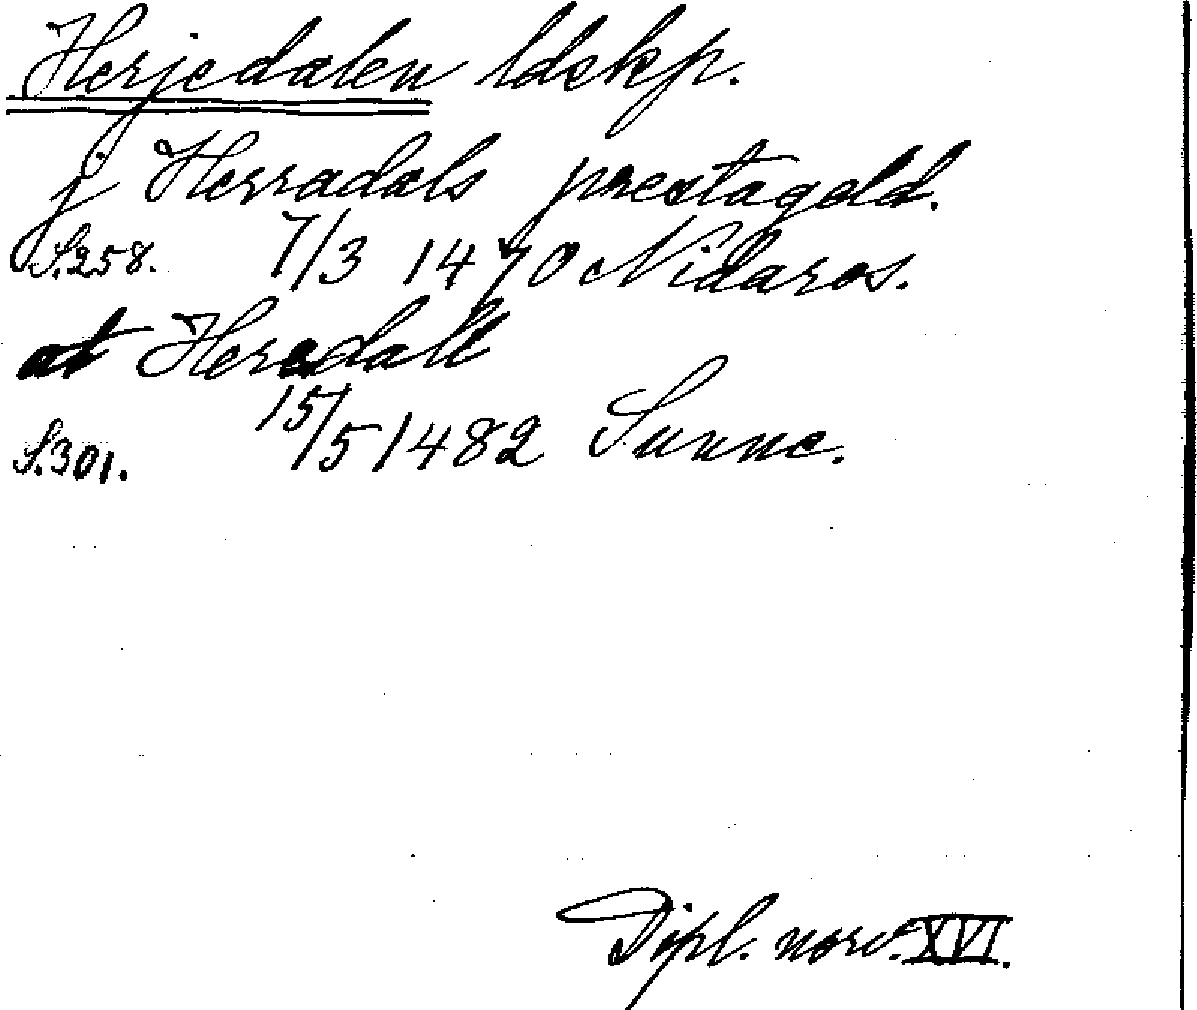 Herjedalen ldskp.
j Herradals prestageld.
S.258. 7/3 1470 Nidaros.
at Heredall
S.301. 15/5 1482 Sunne.
Dipl. norv. XVI.